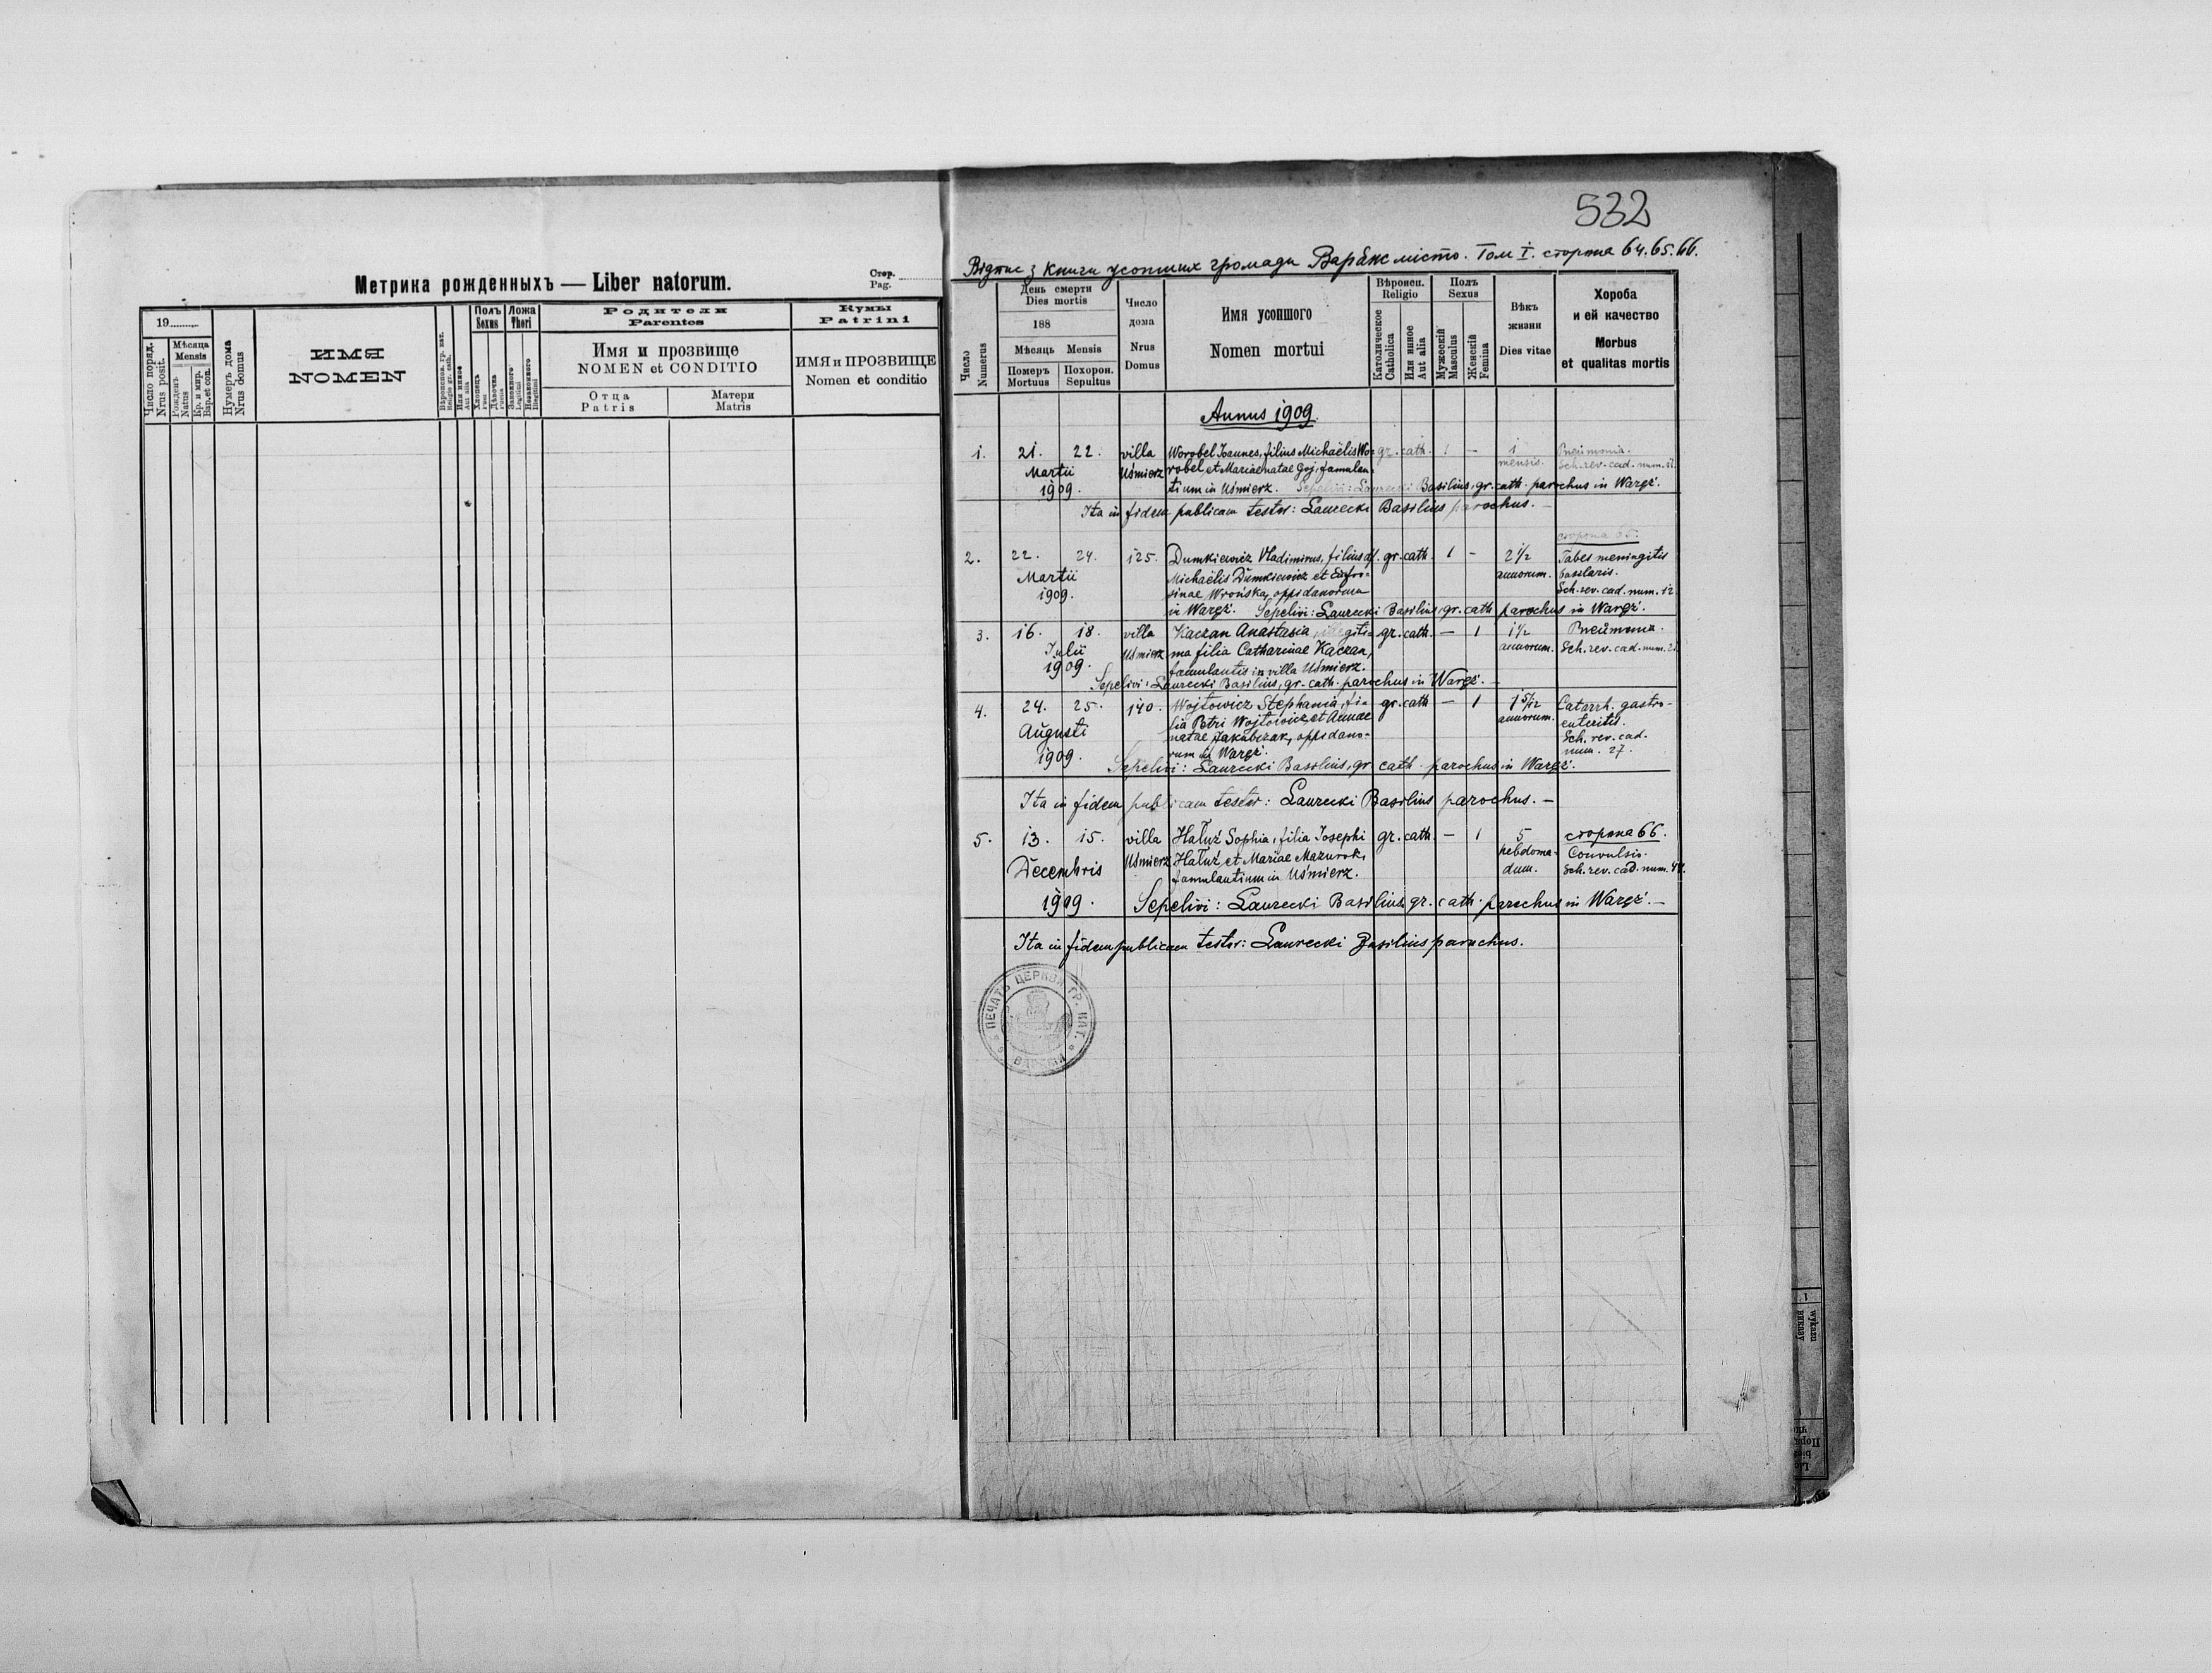 Метрика рожденныхъ — Liber natorum.
Стор.
Pag.
19
Число поряд.
Nrus posit.
Мѣсяца
Mensis
Рожденъ
Natus
Кр. и мир.
Bap. et con.
Нумеръ дома
Nrus domus
ИМЯ
NOMEN
Или иное
Aut alia
Полъ
Sexus
Хлопецъ
Puer
Дѣвочка
Puella
Ложа
Thori
Законного
Legitimi
Незаконного
Illegitimi
Родители
Parentes
Имя и прозвище
NOMEN et CONDITIO
Отца
Patris
Матери
Matris
Кумы
Patrini
ИМЯ и ПРОЗВИЩЕ
Nomen et conditio
532
Відпис з книги усопших громади Варяж місто. Том I. сторона 64. 65. 66.
Число
Numerus
День смерти
Dies mortis
188
Мѣсяць Mensis
Померъ
Mortuus
Похорон.
Sepultus
Число
дома
Nrus
Domus
Имя усопшого
Nomen mortui
Вѣроисп.
Religio
Католическое
Catholica
Или иное
Aut alia
Полъ
Sexus
Мужескій
Masculus
Женскій
Femina
Вѣкъ
жизни
Dies vitae
Хороба
и ей качество
Morbus
et qualitas mortis
Annus 1909.
1. 21. 22. villa Worobel Joannes, filius Michaëlis Wo- gr. cath. 1 — 1 Pneumonia.
Martii Uśmierz robel et Mariae natae Goj, famulan- mensis. Sch. rev. cad. num.
1909. tium in Uśmierz. Sepelivi: Laurecki Basilius, gr. cath. parochus in Waręż.
Ita in fidem publicam testor: Laurecki Basilius parochus.
сторона 65.
2. 22. 24. 125. Dumkiewicz Vladimirus, filius gr. cath. 1 — 2 1/2 Tabes meningitis
Martii Michaëlis Dumkiewicz et Eufro- annorum. basilaris.
1909. sinae Wrońska, oppidanorum Sch. rev. cad. num. 12
in Waręż. Sepelivi: Laurecki Basilius, gr. cath. parochus in Waręż.
3. 16. 18. villa Kaczan Anastasia, illegiti- gr. cath. — 1 1 1/2 Pneumonia.
Julii Uśmierz ma filia Catharinae Kaczan, annorum. Sch. rev. cad. num.
1909. famulantis in villa Uśmierz.
Sepelivi: Laurecki Basilius, gr. cath. parochus in Waręż. —
4. 24. 25. 140. Wojtowicz Stephania, fi- gr. cath. — 1 1 5/12 Catarrh. gastro-
Augusti lia Petri Wojtowicz et Annae annorum. enteritis.
1909. natae Jakubczak, oppidano- Sch. rev. cad.
rum in Waręż. num. 27.
Sepelivi: Laurecki Basilius, gr. cath. parochus in Waręż.
Ita in fidem publicam testor: Laurecki Basilius parochus. —
5. 13. 15. villa Hałuź Sophia, filia Josephi gr. cath. — 1 5 сторона 66.
Decembris Uśmierz Hałuź, et Mariae Mazurok, hebdoma- Convulsio.
famulantium in Uśmierz. dum. Sch. rev. cad. num.
1909. Sepelivi: Laurecki Basilius gr. cath. parochus in Waręż. —
Ita in fidem publicam testor: Laurecki Basilius parochus.
ПЕЧАТЬ ЦЕРКВИ ГР. КАТ.
wykazu
виказу